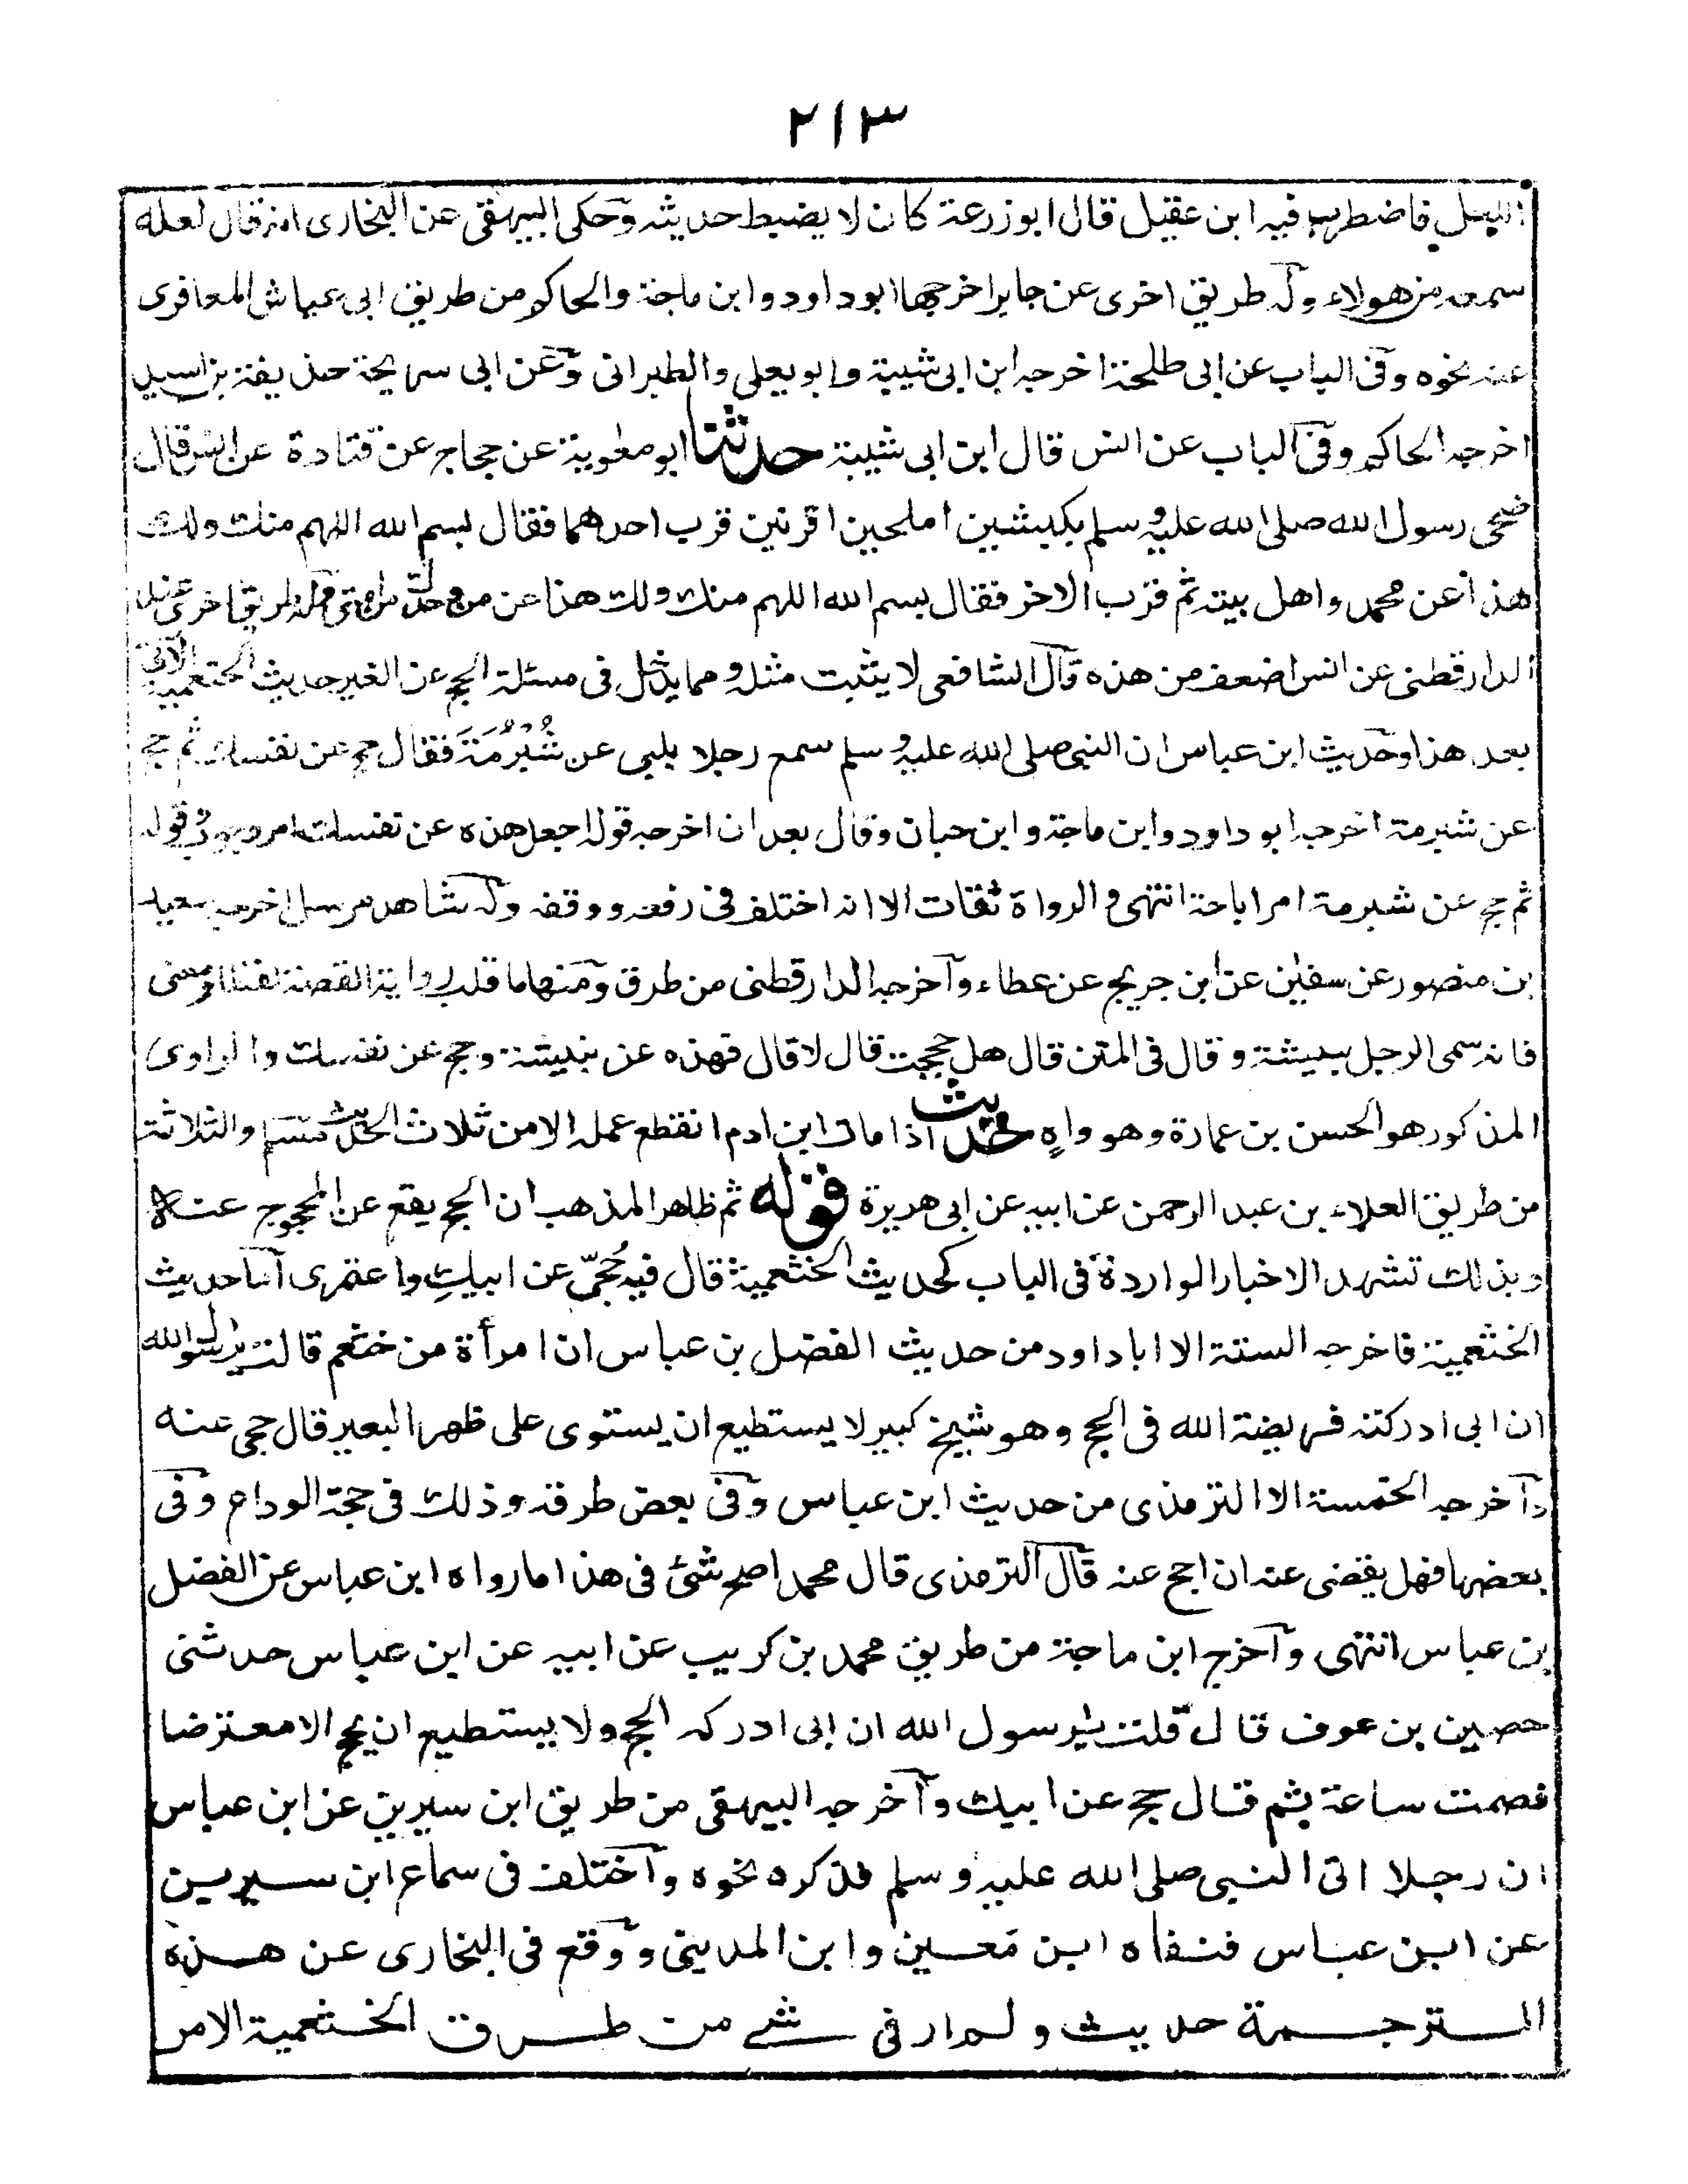 ٢١٣
فاضطرب فيه ابن عقيل قال ابوزرعة كان لا يضبط حديثه وحكى البيهقى عن البخارى انه قال لعله
سمعه من هولاء وله طريق اخرى عن جابر اخرجها ابو داود وابن ماجة والحاكم من طريق ابى عياش المعافرى
عنه نحوه وفى الباب عن ابى طلحة اخرجه ابن ابى شيبة وابو يعلى والطبرانى وعن ابى سريحة حذيفة بن اسيد
اخرجه الحاكم وفى الباب عن انس قال ابن ابى شيبة حدثنا ابو معٰوية عن حجاج عن قتادة عن انس قال
ضحى رسول الله صلى الله عليه وسلم بكبشين املحين اقرنين قرب احدهما فقال بسم الله اللهم منك ولك
هذا عن محمد واهل بيته ثم قرب الاخر فقال بسم الله اللهم منك ولك هذا عن من وحدك من امتى وله طريق اخرى عند
الدارقطنى عن انس اضعف من هذه قال الشافعى لا يثبت مثله ومما يدخل فى مسئلة الحج عن الغير حديث الخثعمية الآتى
بعد هذا وحديث ابن عباس ان النبى صلى الله عليه وسلم سمع رجلا يلبى عن شُبْرُمَةَ فقال حج عن نفسك ثم حج
عن شبرمة اخرجه ابو داود وابن ماجة وابن حبان وقال بعد ان اخرجه قوله اجعل هذه عن نفسك امر وجوب وقوله
ثم حج عن شبرمة امر اباحة انتهى والرواة ثقات الا انه اختلف فى رفعه ووقفه وله شاهد مرسل اخرجه سعيد
بن منصور عن سفيٰن عن ابن جريج عن عطاء وآخرجه الدارقطنى من طرق ومنها ما قلب رواية القصة
فانه سمى الرجل نبيشة وقال فى المتن قال هل حججت قال لا قال فهذه عن نبيشة وحج عن نفسك والراوى
المذكور هو الحسن بن عمارة وهو واهٍ حديث اذا مات ابن ادم انقطع عمله الا من ثلاث الحديث مسلم والثلاثة
من طريق العلاء بن عبد الرحمن عن ابيه عن ابى هريرة قوله ثم ظاهر المذهب ان الحج يقع عن المحجوج عنه
وبذلك تشهد الاخبار الواردة فى الباب كحديث الخثعمية قال فيه حُجّى عن ابيكِ واعتمرى اما حديث
الخثعمية فاخرجه الستة الا ابا داود من حديث الفضل بن عباس ان امرأة من خثعم قالت يرسول الله
ان ابى ادركته فريضة الله فى الحج وهو شيخ كبير لا يستطيع ان يستوى على ظهر البعير قال حجى عنه
وآخرجه الخمسة الا الترمذى من حديث ابن عباس وفى بعض طرقه وذلك فى حجة الوداع وفى
بعضها فهل يقضى عنه ان احج عنه قال الترمذى قال محمد اصح شئ فى هذا ما رواه ابن عباس عن الفضل
بن عباس انتهى وآخرج ابن ماجة من طريق محمد بن كريب عن ابيه عن ابن عباس حدثنى
حصين بن عوف قال قلت يرسول الله ان ابى ادركه الحج ولا يستطيع ان يحج الا معترضا
فصمت ساعة ثم قال حج عن ابيك وآخرجه البيهقى من طريق ابن سيرين عن ابن عباس
ان رجلا اتى النبى صلى الله عليه وسلم فذكره نحوه وآختلف فى سماع ابن سيرين
عن ابن عباس فنفاه ابن مَعين وابن المدينى ووقع فى البخارى عن هذه
الترجمة حديث ولم ار فى شئ من طرق الخثعمية الامر